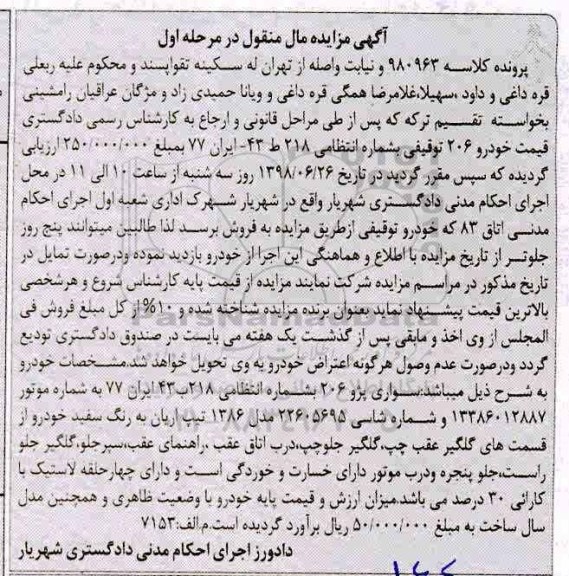 آگهی مزایده مال منقول در مرحله اول
پرونده کلاسه ۹۸۰۹۶۳ و نیابت واصله از تهران له سکینه تقواپسند و محکوم علیه ربعلی
قره داغی و داود ،سهیلا،غلامرضا همگی قره داغی و ویانا حمیدی زاد و مژگان عراقیان رامشینی
بخواسته تقسیم ترکه که پس از طی مراحل قانونی و ارجاع به کارشناس رسمی دادگستری
قیمت خودرو ۲۰۶ توقیفی بشماره انتظامی ۲۱۸ ط ۴۳- ایران ۷۷ بمبلغ ۲۵۰/۰۰۰/۰۰۰ ارزیابی
گردیده که سپس مقرر گردید در تاریخ ۱۳۹۸/۰۶/۲۶ روز سه شنبه از ساعت ۱۰ الی ۱۱ در محل
اجرای احکام مدنی دادگستری شهریار واقع در شهریار شهرک اداری شعبه اول اجرای احکام
مدنی اتاق ۸۳ که خودرو توقیفی ازطریق مزایده به فروش برسد لذا طالبین میتوانند پنج روز
جلوتر از تاریخ مزایده با اطلاع و هماهنگی این اجرا از خودرو بازدید نموده ودرصورت تمایل در
تاریخ مذکور در مراسم مزایده شرکت نمایند مزایده از قیمت پایه کارشناس شروع و هرشخصی
بالاترین قیمت پیشنهاد نماید بعنوان برنده مزایده شناخته شده و ۱۰% از کل مبلغ فروش فی
المجلس از وی اخذ و مابقی پس از گذشت یک هفته می بایست در صندوق دادگستری تودیع
گردد ودرصورت عدم وصول هرگونه اعتراض خودرو به وی تحویل خواهد شد.مشخصات خودرو
به شرح ذیل میباشد:سواری پژو ۲۰۶ بشماره انتظامی ۲۱۸ب۴۳ ایران ۷۷ به شماره موتور
۱۳۳۸۶۰۱۲۸۸۷ و شماره شاسی ۲۲۶۰۵۶۹۵ مدل ۱۳۸۶ تیپ اریان به رنگ سفید خودرو از
قسمت های گلگیر عقب چپ،گلگیر جلوچپ،درب اتاق عقب ،راهنمای عقب،سپرجلو،گلگیر جلو
راست،جلو پنجره ودرب موتور دارای خسارت و خوردگی است و دارای چهارحلقه لاستیک با
کارائی ۳۰ درصد می باشد.میزان ارزش و قیمت پایه خودرو با وضعیت ظاهری و همچنین مدل
سال ساخت به مبلغ ۵۰/۰۰۰/۰۰۰ ریال برآورد گردیده است.م.الف:۷۱۵۳
دادورز اجرای احکام مدنی دادگستری شهریار